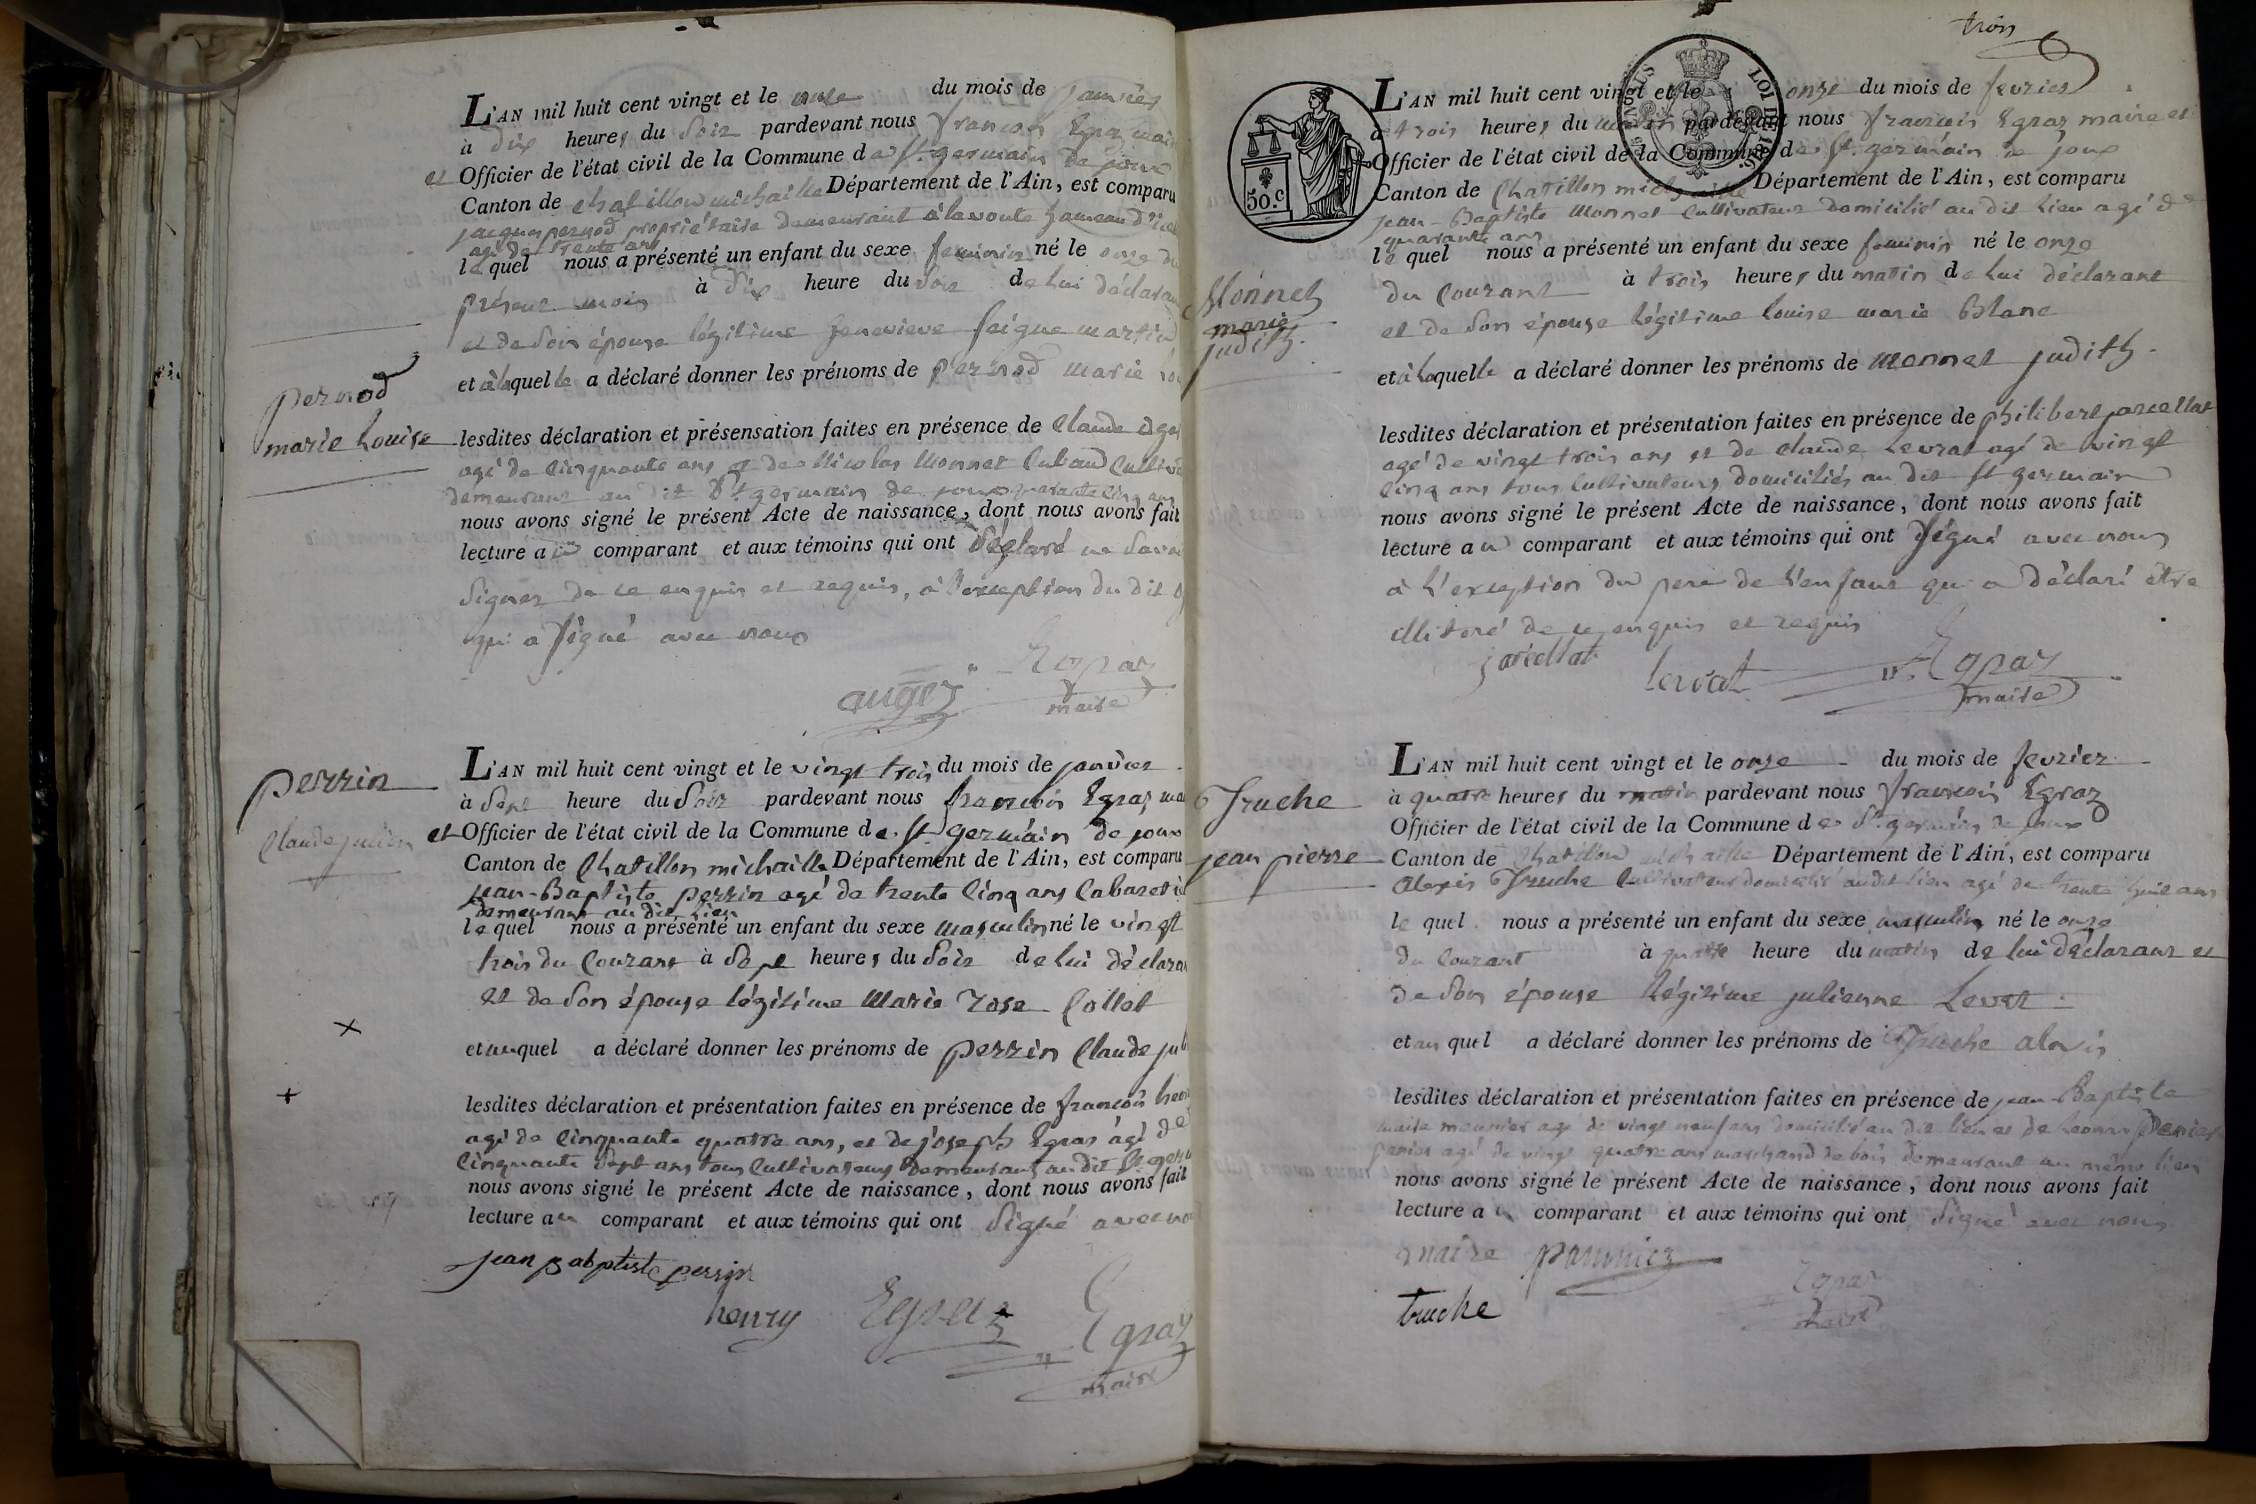 L'AN mil huit cent vingt et le onze du mois de janvier
à dix heures du soir pardevant nous françois Egraz mai
et Officier de l'état civil de la Commune de St germain de joux
Canton de chatillon michaille Département de l'Ain, est comparu
jacques pernod propriétaire demeurant à lavoute hameau d'
agé de trente ans
lequel nous a présenté un enfant du sexe feminin né le onze du
présent mois à dix heure du soir de lui déclaran
et de son épouse légitime genevieve seigne martin
et à laquelle a déclaré donner les prénoms de pernod marie lou
pernod
marie louise
lesdites déclaration et présensation faites en présence de Claude
agé de Cinquante ans et de Nicolas Monnet Cultiv
demeurant au dit St germain de joux quarante cinq ans
nous avons signé le présent Acte de naissance, dont nous avons fait
lecture au comparant et aux témoins qui ont déclaré ne savoi
signer de ce enquis et requis, à l'exception du dit
qui a signé avec nous
auger Egraz
maire
perrin
Claude julien
L'AN mil huit cent vingt et le vingt trois du mois de janvier
à Sept heure du Soir pardevant nous françois Egraz ma
et Officier de l'état civil de la Commune de St germain de joux
Canton de Chatillon michaille Département de l'Ain, est comparu
jean-Baptiste perrin agé de trente Cinq ans Cabareti
demeurant au dit lieu
lequel nous a présenté un enfant du sexe masculin né le vingt
trois du Courant à Sept heures du Soir de lui déclara
et de son épouse légitime Marie rose Collet
et auquel a déclaré donner les prénoms de perrin Claude jul
lesdites déclaration et présentation faites en présence de françois hen
agé de Cinquante quatre ans, et de joseph Egraz agé de
Cinquante Sept ans tous Cultivateurs demeurant au dit St germ
nous avons signé le présent Acte de naissance, dont nous avons fait
lecture au comparant et aux témoins qui ont Signé avec no
jean Babptiste perrin
henry Egraz Egraz
maire
trois
50.c
L'AN mil huit cent vingt et le onze du mois de fevrier
à trois heures du matin pardevant nous françois Egraz maire et
Officier de l'état civil de la Commune de St germain de joux
Canton de Chatillon michaille Département de l'Ain, est comparu
jean-Baptiste Monnet Cultivateur domicilié au dit lieu agé de
quarante ans
lequel nous a présenté un enfant du sexe feminin né le onze
du Courant à trois heures du matin de lui déclarant
et de son épouse légitime louise marie Blanc
Monnet
marie
judith.
et à laquelle a déclaré donner les prénoms de monnet judith.
lesdites déclaration et présentation faites en présence de philibert jarcellat
agé de vingt trois ans et de claude Levrat agé de vingt
Cinq ans tous Cultivateurs domiciliés au dit St germain
nous avons signé le présent Acte de naissance, dont nous avons fait
lecture au comparant et aux témoins qui ont signé avec nous
à l'exception du pere de l'enfant qui a déclaré être
illitoré de ce enquis et requis
Egraz
maire
L'AN mil huit cent vingt et le onze du mois de fevrier
à quatre heures du matin pardevant nous françois Egraz
Officier de l'état civil de la Commune de St germain de joux
Canton de Chatillon michaille Département de l'Ain, est comparu
Truche
jean pierre
alexis Truche Cultivateur domicilié au dit lieu agé de trente huit ans
lequel nous a présenté un enfant du sexe masculin né le onze
du Courant à quatre heure du matin de lui déclarant et
de son épouse légitime julienne Levrat
et au quel a déclaré donner les prénoms de Truche alexis
lesdites déclaration et présentation faites en présence de jean-Baptiste
maire meunier agé de vingt neuf ans domicilié au dit lieu et de
agé de vingt quatre ans marchand de bois demeurant au même lieu
nous avons signé le présent Acte de naissance, dont nous avons fait
lecture au comparant et aux témoins qui ont signé avec nous
maire
truche Egraz
maire